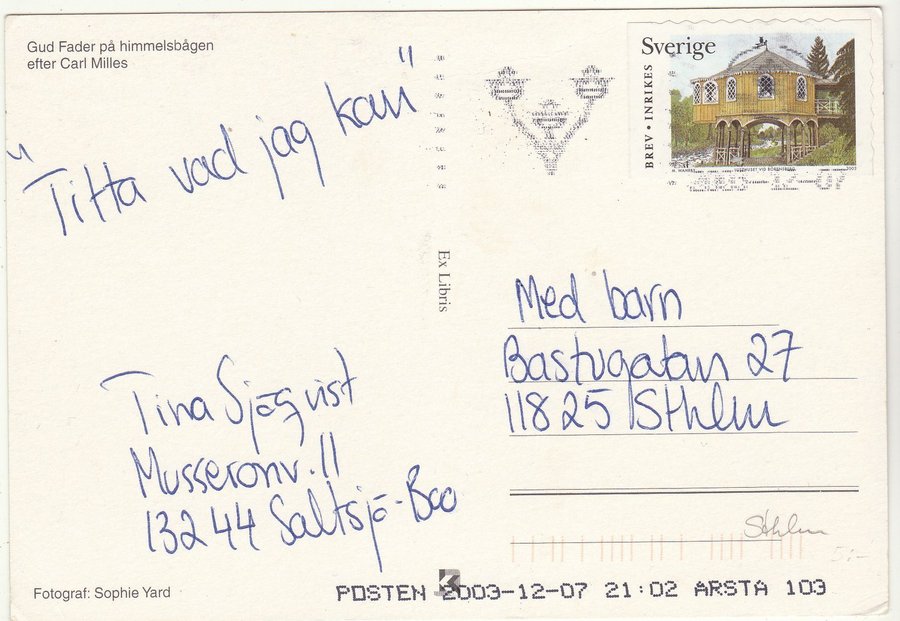 Gud Fader på himmelsbågen
efter Carl Milles
"Titta vad jag kan"
Sverige
BREV • INRIKES
2003
2003-12-07
Ex Libris
Med barn
Bastugatan 27
11825 Sthlm
Tina Sjöqvist
Musseronv. 11
13244 Saltsjö-Boo
Sthlm
5:-
Fotograf: Sophie Yard
POSTEN 2003-12-07 21:02 ARSTA 103